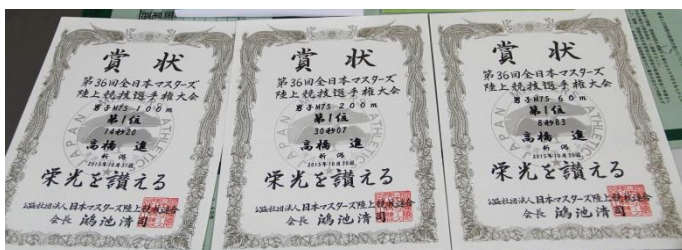 賞状
第36回全日本マスターズ
陸上競技選手権大会
男子M75 100m
第1位
14秒20
高橋 進
新潟
2015年10月31日
栄光を讃える
公益社団法人日本マスターズ陸上競技連合
会長 鴻池清司
賞状
第36回全日本マスターズ
陸上競技選手権大会
男子M75 200m
第1位
30秒07
高橋 進
新潟
2015年10月30日
栄光を讃える
公益社団法人日本マスターズ陸上競技連合
会長 鴻池清司
賞状
第36回全日本マスターズ
陸上競技選手権大会
男子M75 60m
第1位
8秒83
高橋 進
新潟
2015年10月30日
栄光を讃える
公益社団法人日本マスターズ陸上競技連合
会長 鴻池清司